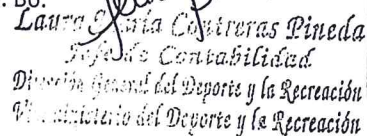 . Bo.
Laura María Contreras Pineda
Jefe de Contabilidad
Dirección General del Deporte y la Recreación
Viceministerio del Deporte y la Recreación